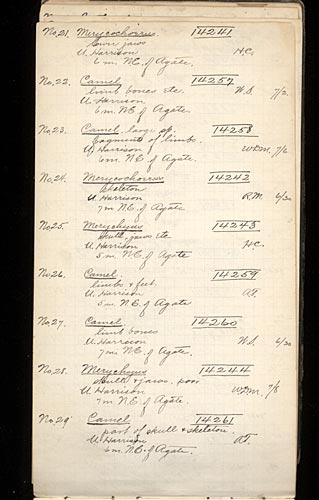 No. 21. Merycochoerus 14241
lower jaws
U. Harrison H.C.
6 m. N.E. of Agate.
No. 22. Camel 14257
limb bones etc. W.S. 7/2
U. Harrison
6 m. N.E. of Agate
No. 23. Camel, large sp. 14258
fragments of limbs.
U. Harrison W.D.M. 7/2
6 m. N.E. of Agate.
No. 24. Merycochoerus 14242
skeleton
U. Harrison R.M. 6/30
7 m. N.E. of Agate
No. 25. Merychyus 14243
skull, jaws etc
U. Harrison H.C.
5 m. N.E. of Agate
No. 26. Camel. 14259
limbs & feet.
U. Harrison A.T.
5 m. N.E. of Agate
No. 27. Camel 14260
limb bones
U. Harrison W.S. 6/30
7 m. N.E. of Agate.
No. 28. Merychyus 14244
skull & jaws, poor
U. Harrison W.D.M. 7/8
7 m. N.E. of Agate.
No. 29 Camel 14261
part of skull & skeleton
U. Harrison A.T.
6 m. N.E. of Agate.